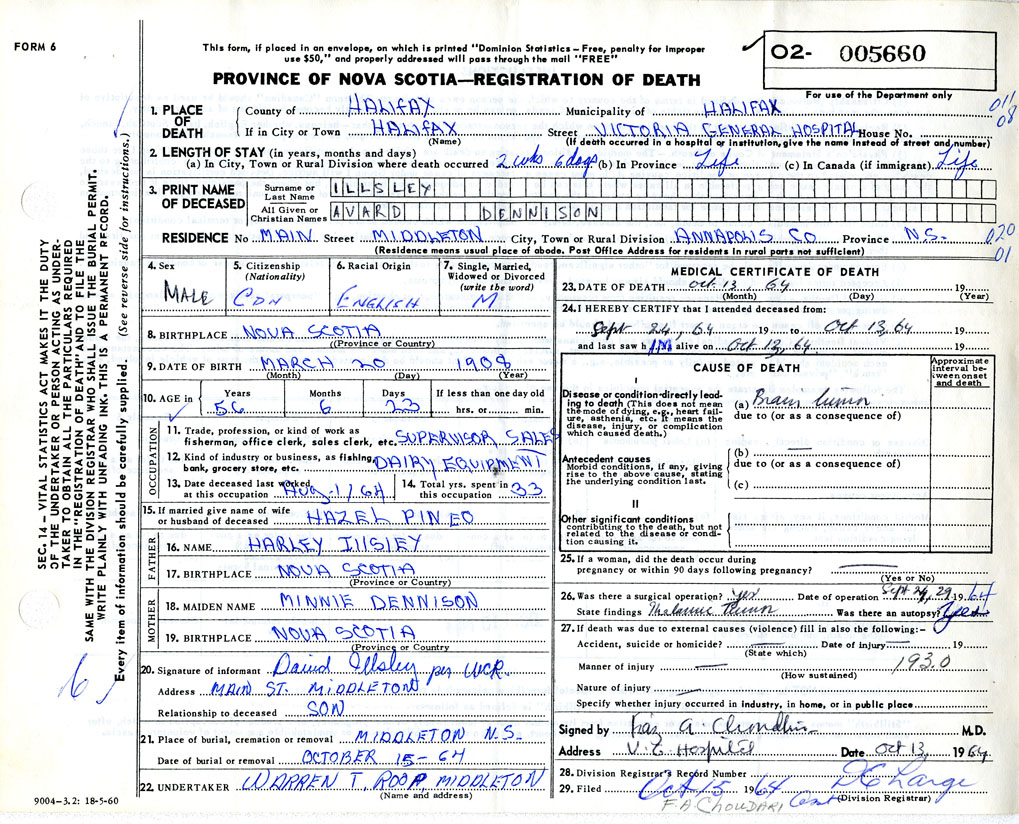 FORM 6
This form, if placed in an envelope, on which is printed "Dominion Statistics – Free, penalty for improper
use $50," and properly addressed will pass through the mail "FREE"
PROVINCE OF NOVA SCOTIA—REGISTRATION OF DEATH
02- 005660
For use of the Department only
011
08
1. PLACE OF DEATH
County of HALIFAX Municipality of HALIFAX
If in City or Town HALIFAX Street VICTORIA GENERAL HOSPITAL House No.
(Name) (If death occurred in a hospital or institution, give name instead of street and number)
2. LENGTH OF STAY (in years, months and days)
(a) In City, Town or Rural Division where death occurred 2 wks 6 days (b) In Province Life (c) In Canada (if immigrant) Life
3. PRINT NAME OF DECEASED
Surname or Last Name ILLSLEY
All Given or Christian Names AVARD DENNISON
RESIDENCE No MAIN Street MIDDLETON City, Town or Rural Division ANNAPOLIS CO Province N.S.
(Residence means usual place of abode. Post Office Address for residents in rural parts not sufficient)
020
01
4. Sex MALE
5. Citizenship (Nationality) CDN
6. Racial Origin ENGLISH
7. Single, Married, Widowed or Divorced (write the word) M
8. BIRTHPLACE NOVA SCOTIA
(Province or Country)
9. DATE OF BIRTH MARCH 20 1908
(Month) (Day) (Year)
10. AGE in Years 56 Months 6 Days 23 If less than one day old hrs. or min.
OCCUPATION
11. Trade, profession, or kind of work as
fisherman, office clerk, sales clerk, etc. SUPERVISOR SALES
12. Kind of industry or business, as fishing,
bank, grocery store, etc. DAIRY EQUIPMENT
13. Date deceased last worked at this occupation AUG. 1/64
14. Total yrs. spent in this occupation 33
15. If married give name of wife
or husband of deceased HAZEL PINEO
FATHER
16. NAME HARLEY IllSLEY
17. BIRTHPLACE NOVA SCOTIA
(Province or Country)
MOTHER
18. MAIDEN NAME MINNIE DENNISON
19. BIRTHPLACE NOVA SCOTIA
(Province or Country)
20. Signature of informant David Illsley per WCR.
Address MAIN ST. MIDDLETON
Relationship to deceased SON
21. Place of burial, cremation or removal MIDDLETON N.S.
Date of burial or removal OCTOBER 15-64
22. UNDERTAKER WARREN T. ROOP, MIDDLETON
(Name and address)
MEDICAL CERTIFICATE OF DEATH
23. DATE OF DEATH Oct 13, 64 19
(Month) (Day) (Year)
24. I HEREBY CERTIFY that I attended deceased from:
Sept 24, 64 19 to Oct 13, 64 19
and last saw h im alive on Oct 13, 64 19
CAUSE OF DEATH
Approximate interval between onset and death
I
Disease or condition directly leading to death (This does not mean the mode of dying, e.g., heart failure, asthenia, etc. It means the disease, injury, or complication which caused death.)
(a) Brain tumor
due to (or as a consequence of)
Antecedent causes
Morbid conditions, if any, giving rise to the above cause, stating the underlying condition last.
(b)
due to (or as a consequence of)
(c)
II
Other significant conditions
contributing to the death, but not related to the disease or condition causing it.
25. If a woman, did the death occur during
pregnancy or within 90 days following pregnancy?
(Yes or No)
26. Was there a surgical operation? Yes Date of operation Sept 24, 29 1964
State findings Thalamic Tumor Was there an autopsy? Yes
27. If death was due to external causes (violence) fill in also the following:–
Accident, suicide or homicide? Date of injury 19
(State which)
Manner of injury 193.0
(How sustained)
Nature of injury
Specify whether injury occurred in industry, in home, or in public place
Signed by M.D.
Address V. G Hospital Date Oct 13, 1964
28. Division Registrar's Record Number
29. Filed Oct 15 1964
(Division Registrar)
F A CHOUDARI
SEC. 14 – VITAL STATISTICS ACT MAKES IT THE DUTY
OF THE UNDERTAKER OR PERSON ACTING AS UNDER-
TAKER TO OBTAIN ALL THE PARTICULARS REQUIRED
IN THE "REGISTRATION OF DEATH" AND TO FILE THE
SAME WITH THE DIVISION REGISTRAR WHO SHALL ISSUE THE BURIAL PERMIT.
WRITE PLAINLY WITH UNFADING INK. THIS IS A PERMANENT RECORD.
Every item of information should be carefully supplied. (See reverse side for instructions.)
9004-3.2: 18-5-60